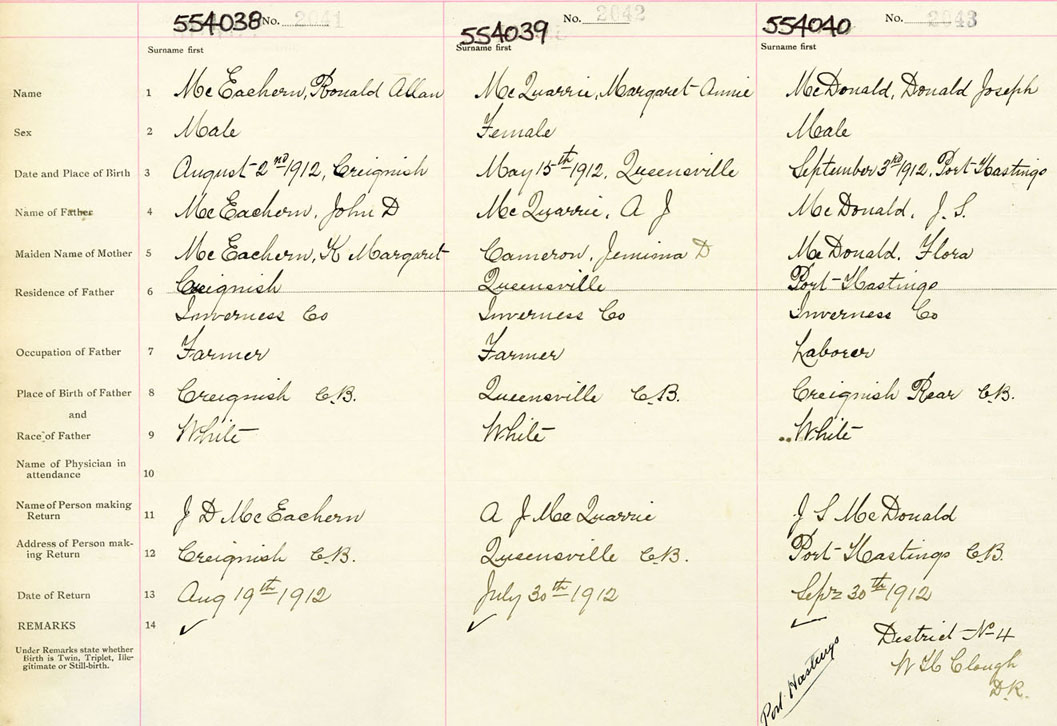 554038 No. 2041
554039 No. 2042
554040 No. 2043
Surname first
Surname first
Surname first
Name 1 McEachern, Ronald Allan McQuarrie, Margaret Annie McDonald, Donald Joseph
Sex 2 Male Female Male
Date and Place of Birth 3 August 2nd 1912, Creignish May 15th 1912, Queensville September 3rd 1912, Port Hastings
Name of Father 4 McEachern, John D McQuarrie, A J McDonald, J. S.
Maiden Name of Mother 5 McEachern, K Margaret Cameron, Jemima D McDonald, Flora
Residence of Father 6 Creignish Queensville Port Hastings
Inverness Co Inverness Co Inverness Co
Occupation of Father 7 Farmer Farmer Laborer
Place of Birth of Father 8 Creignish C.B. Queensville C.B. Creignish Rear C.B.
and
Race of Father 9 White White White
Name of Physician in
attendance 10
Name of Person making
Return 11 J D McEachern A J McQuarrie J S McDonald
Address of Person mak-
ing Return 12 Creignish C.B. Queensville C.B. Port Hastings C.B.
Date of Return 13 Aug 19th 1912 July 30th 1912 Sept 30th 1912
REMARKS 14
Under Remarks state whether
Birth is Twin, Triplet, Ille-
gitimate or Still-birth.
District No 4
W H Clough
D.R.
Port Hastings